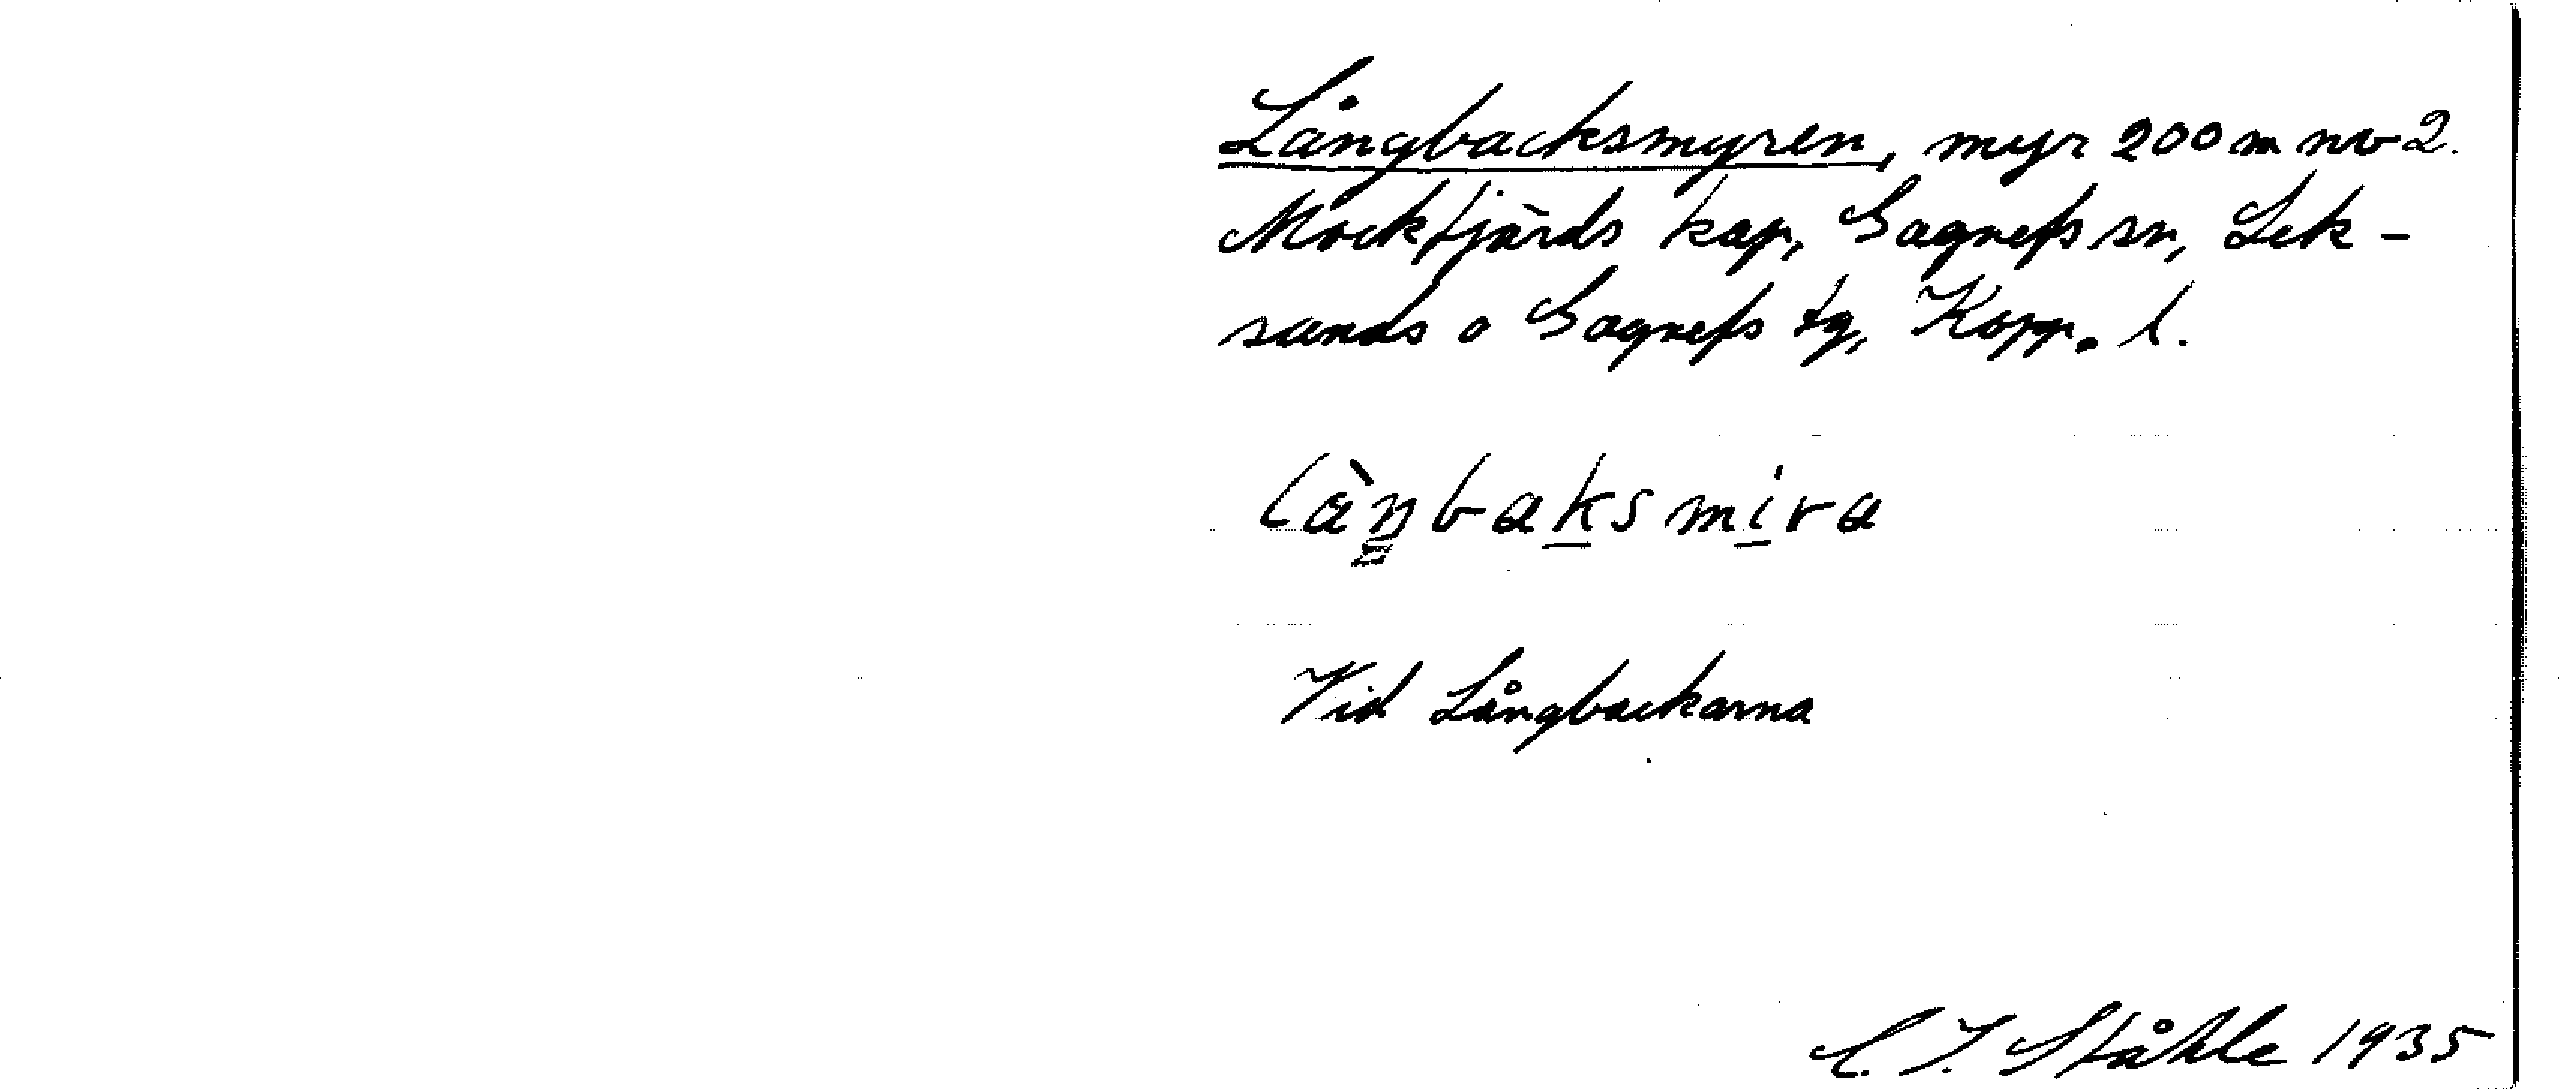 Långbacksmyren, myr 200 m nv 2.
Mockfjärds kap, Gagnefs sn, Lek-
sands o Gagnefs tg, Kopp. l.
làŋbaksmira
Vid Långbackarna
C. I. Ståhle 1935